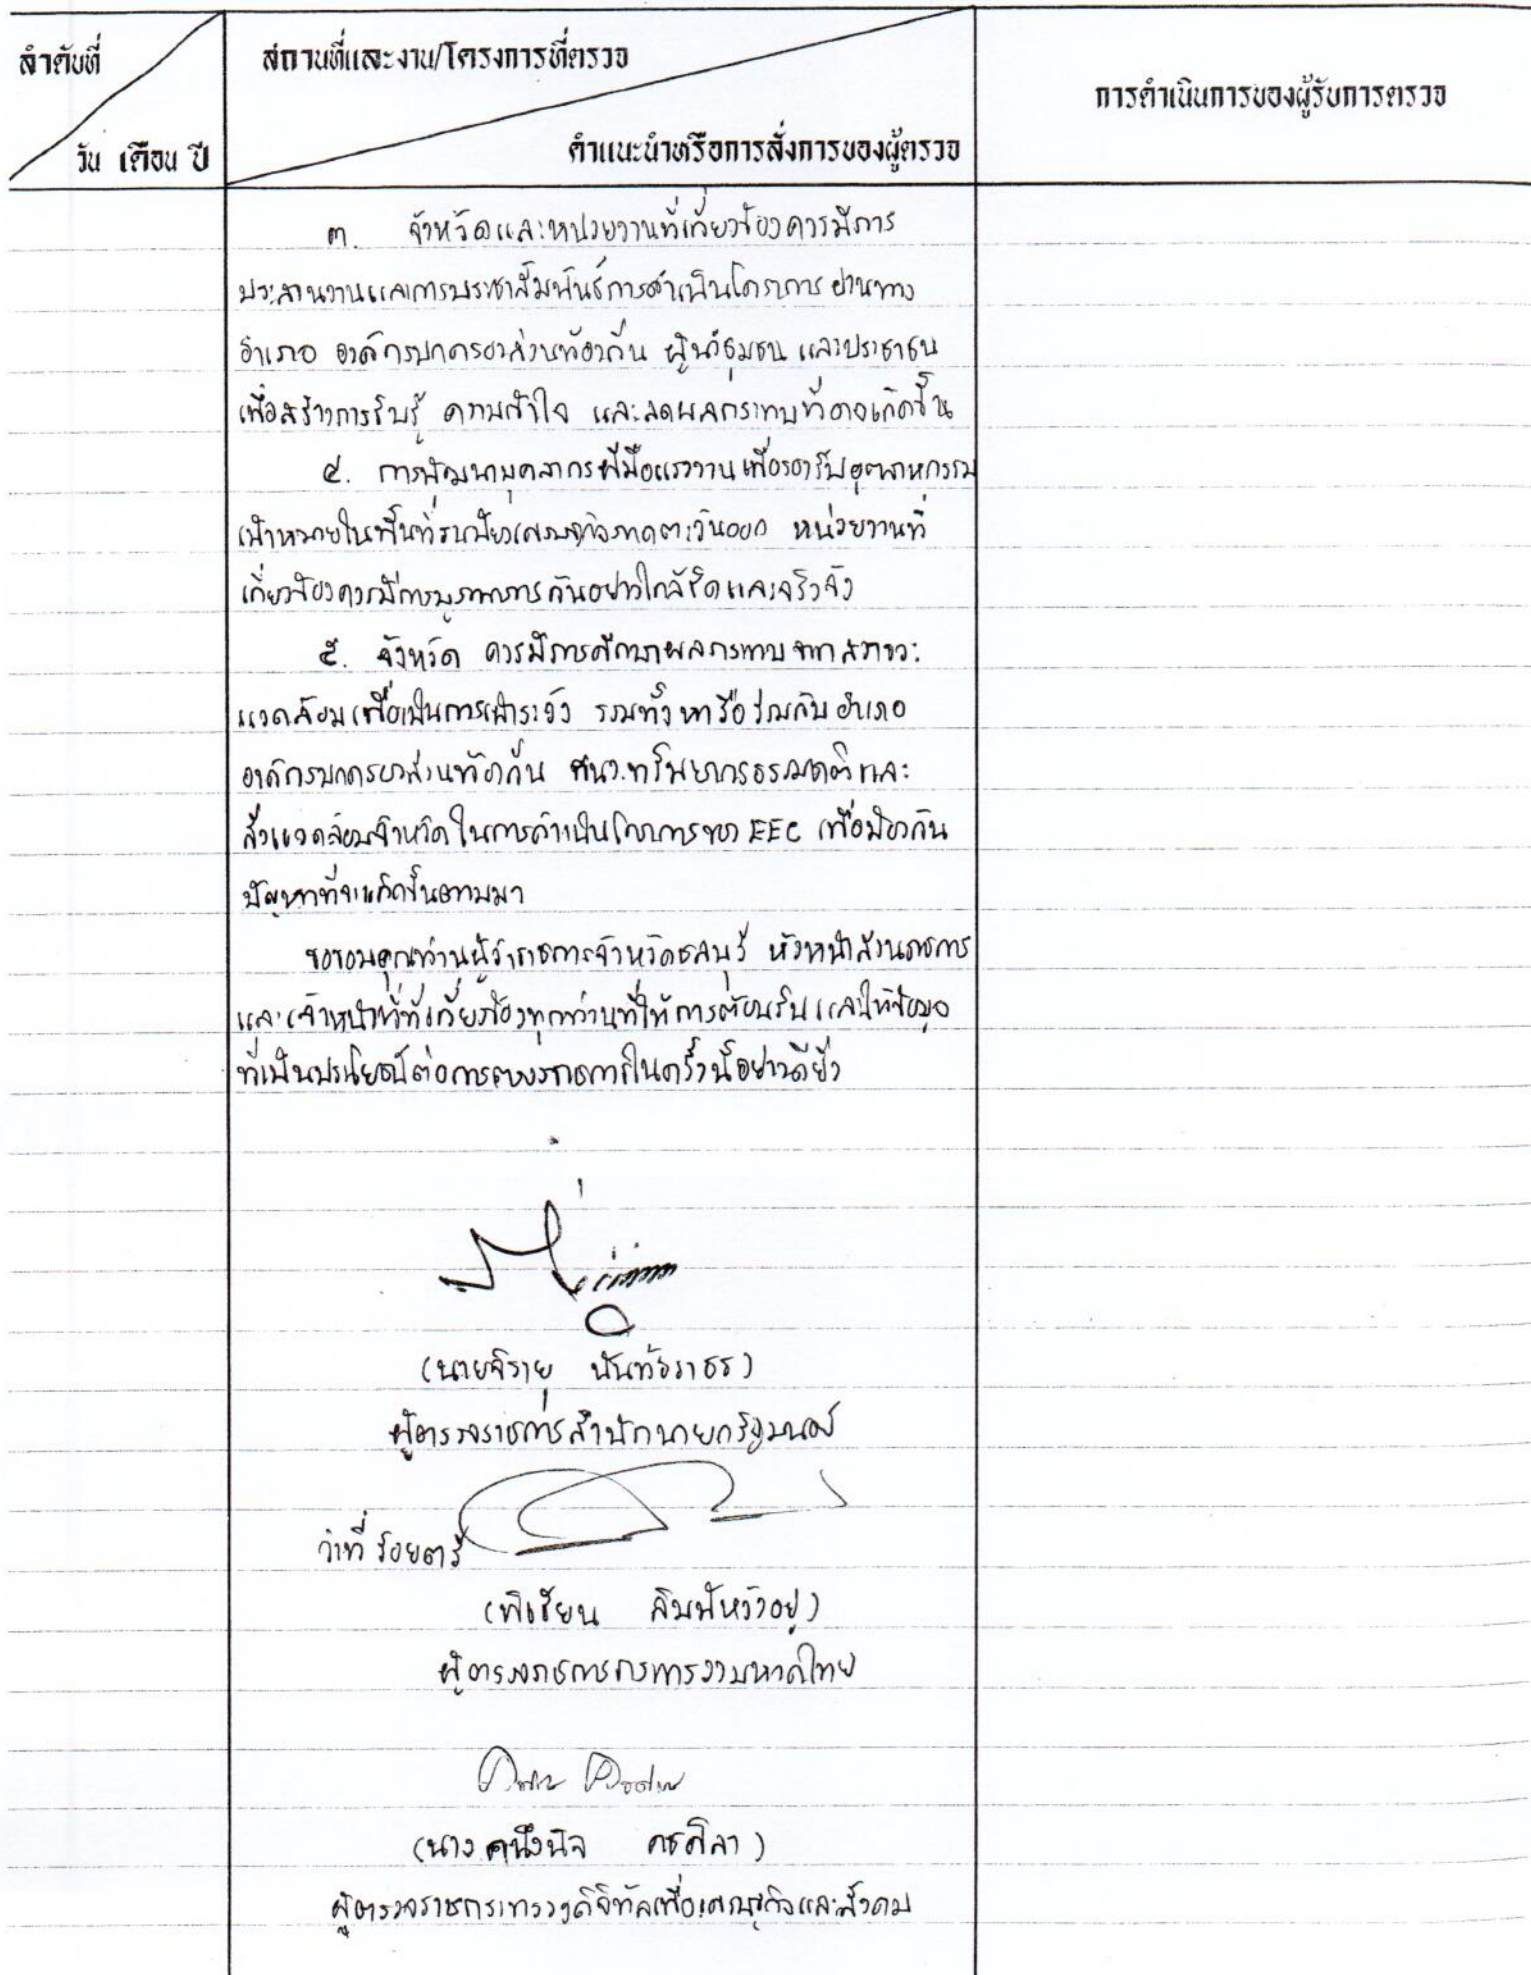 ลำดับที่
วัน เดือน ปี
สถานที่และงาน/โครงการที่ตรวจ
คำแนะนำหรือการสั่งการของผู้ตรวจ
การดำเนินการของผู้รับการตรวจ
๓. จังหวัดและหน่วยงานที่เกี่ยวข้องควรมีการ
ประสานงานและการประชาสัมพันธ์การดำเนินโครงการ ผ่านทาง
อำเภอ องค์กรปกครองส่วนท้องถิ่น ผู้นำชุมชน และประชาชน
เพื่อสร้างการรับรู้ ความเข้าใจ และลดผลกระทบที่อาจเกิดขึ้น
๔. การพัฒนาบุคลากรฝีมือแรงงาน เพื่อรองรับอุตสาหกรรม
เป้าหมายในพื้นที่ระเบียงเศรษฐกิจภาคตะวันออก หน่วยงานที่
เกี่ยวข้องควรมีการบูรณาการกันอย่างใกล้ชิดและจริงจัง
๕. จังหวัด ควรมีการศึกษาผลกระทบจากสภาวะ
แวดล้อมเพื่อเป็นการเฝ้าระวัง รวมทั้งหารือร่วมกับ อำเภอ
องค์กรปกครองส่วนท้องถิ่น สนง.ทรัพยากรธรรมชาติและ
สิ่งแวดล้อมจังหวัด ในการดำเนินโครงการของ EEC เพื่อป้องกัน
ปัญหาที่จะเกิดขึ้นตามมา
ขอขอบคุณท่านผู้ว่าราชการจังหวัดชลบุรี หัวหน้าส่วนราชการ
และเจ้าหน้าที่ที่เกี่ยวข้องทุกท่านที่ให้การต้อนรับ และให้ข้อมูล
ที่เป็นประโยชน์ต่อการตรวจราชการในครั้งนี้อย่างดียิ่ง
(นายจิรายุ นันท์ธราธร)
ผู้ตรวจราชการสำนักนายกรัฐมนตรี
ว่าที่ ร้อยตรี
(พิเชียน ลิมป์หวังอยู่)
ผู้ตรวจราชการกระทรวงมหาดไทย
(นางคนึงนิจ คชศิลา)
ผู้ตรวจราชการกระทรวงดิจิทัลเพื่อเศรษฐกิจและสังคม